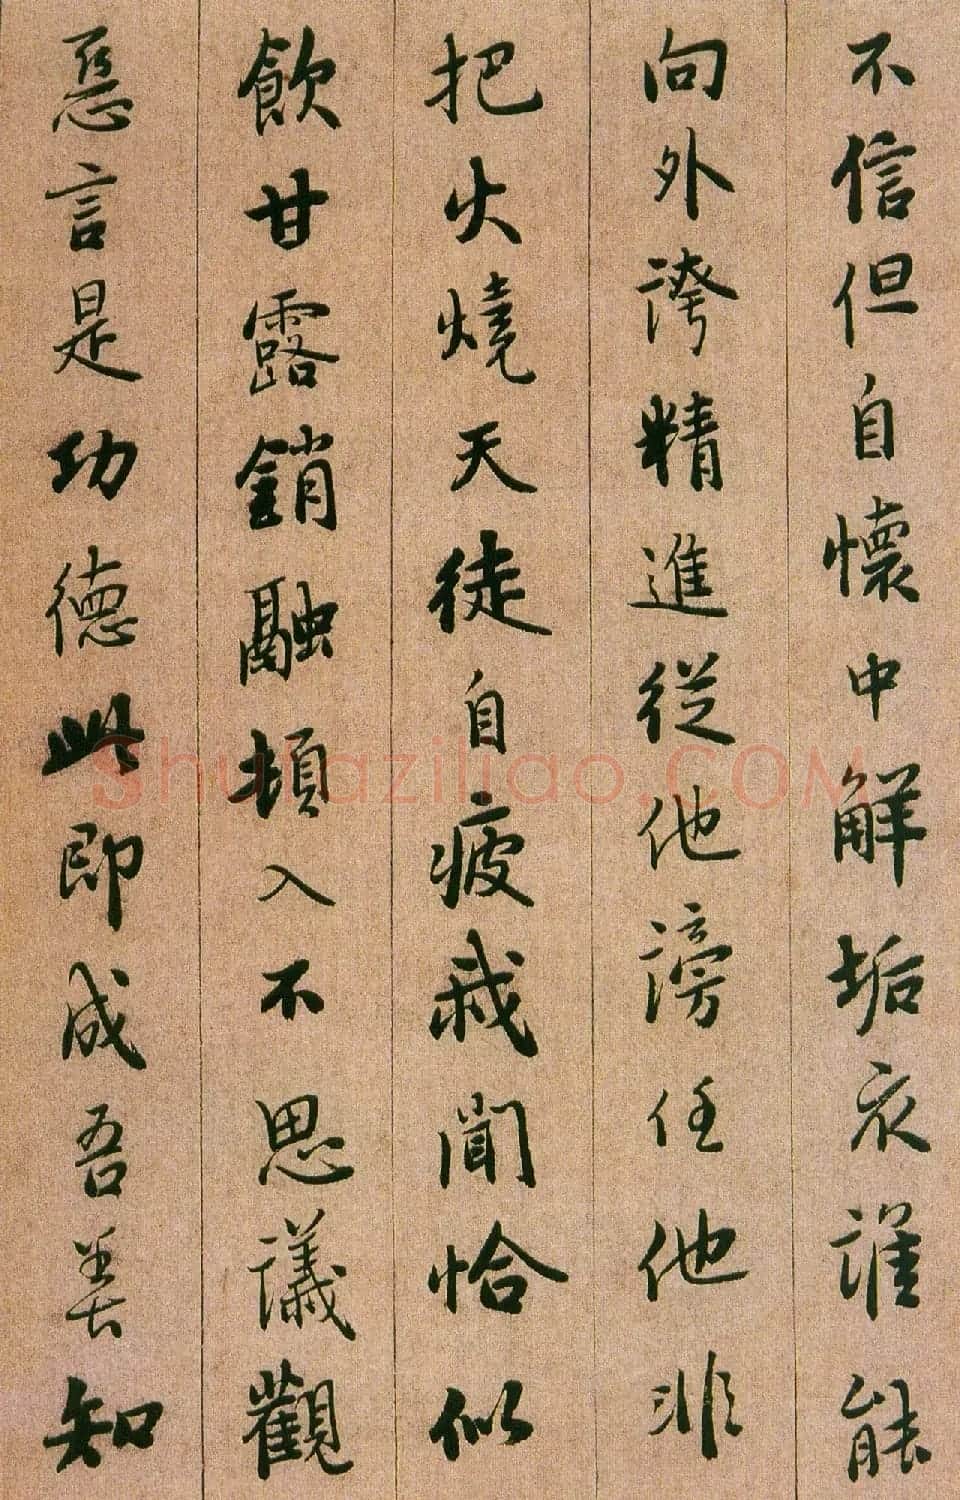 不信但自懷中解垢衣誰能
向外誇精進從他謗任他非
把火燒天徒自疲我聞恰似
飲甘露銷融頓入不思議觀
惡言是功德此即成吾善知
Shufaziliao.COM